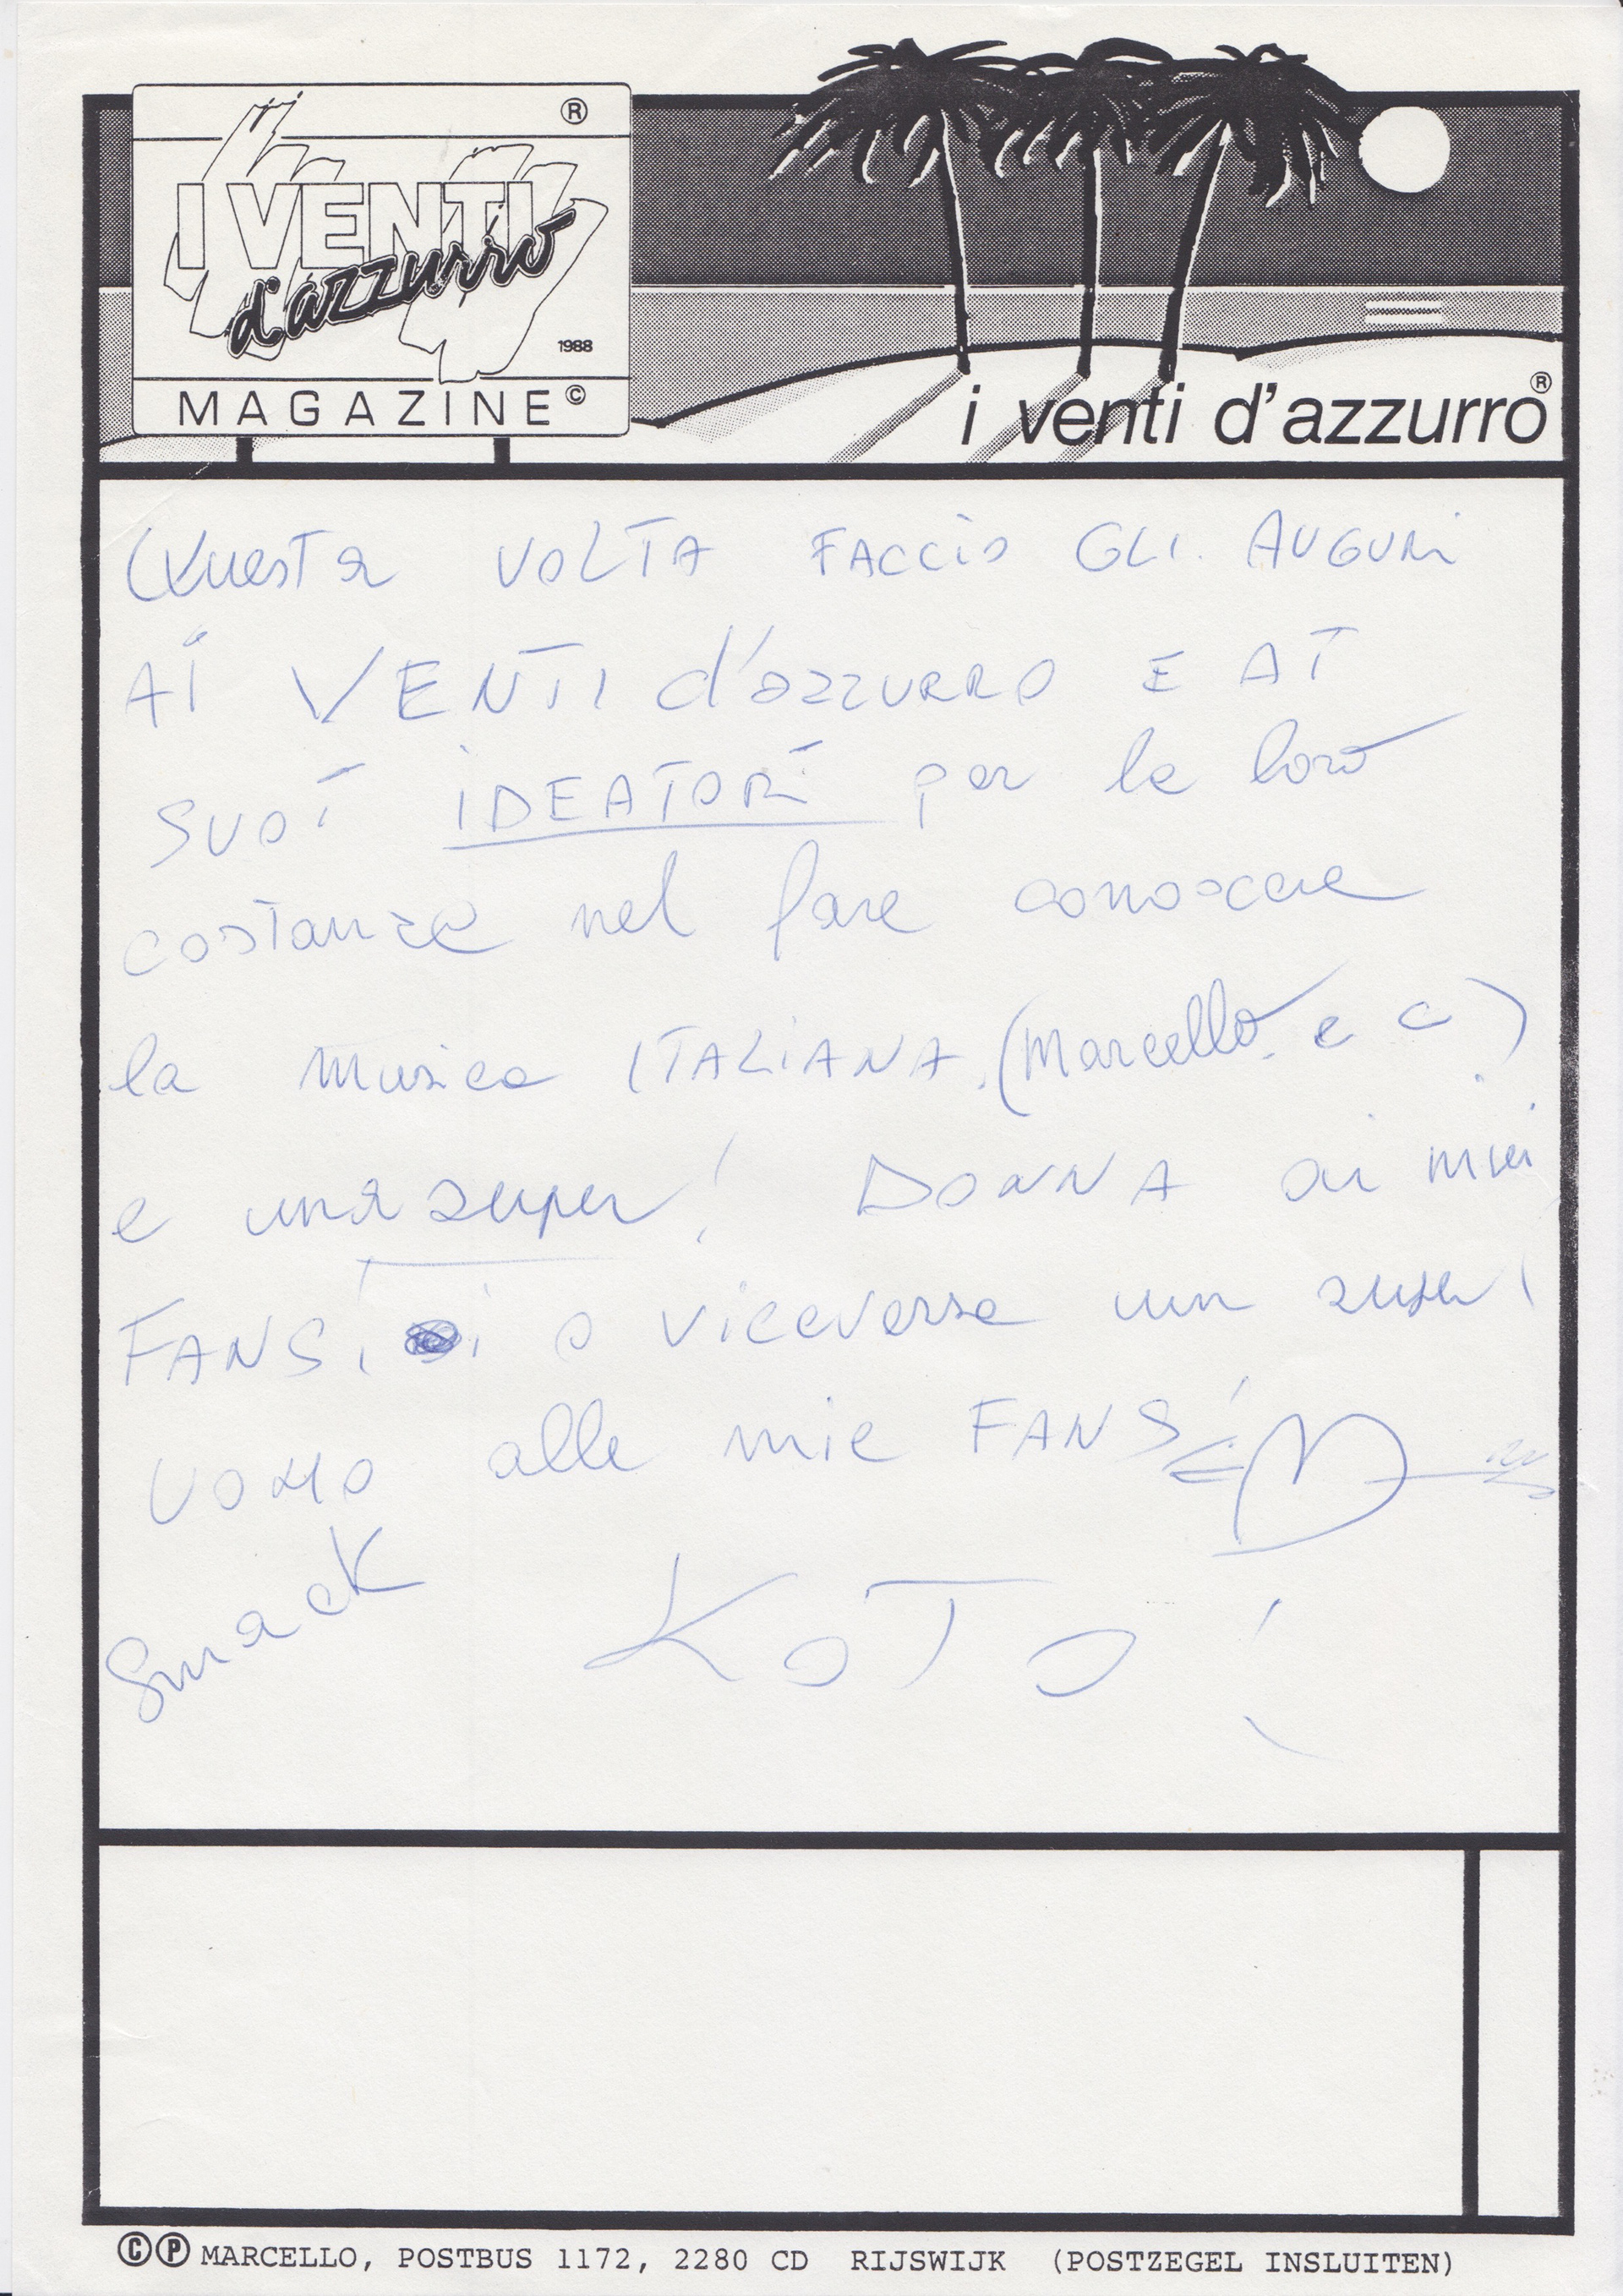 ®
I VENTI
d'azzurro
1988
MAGAZINE©
i venti d'azzurro®
Questa VOLTA FACCIO GLI AUGURI
AI VENTI d'azzURRO E AI
SUOI IDEATORI per la loro
costanza nel fare conoscere
la musica ITALIANA. (Marcello e C.)
e una super! DONNA ai miei
FANS! o viceversa un super!
UOMO alle mie FANS!
Smack
KOTO!
©℗ MARCELLO, POSTBUS 1172, 2280 CD RIJSWIJK (POSTZEGEL INSLUITEN)